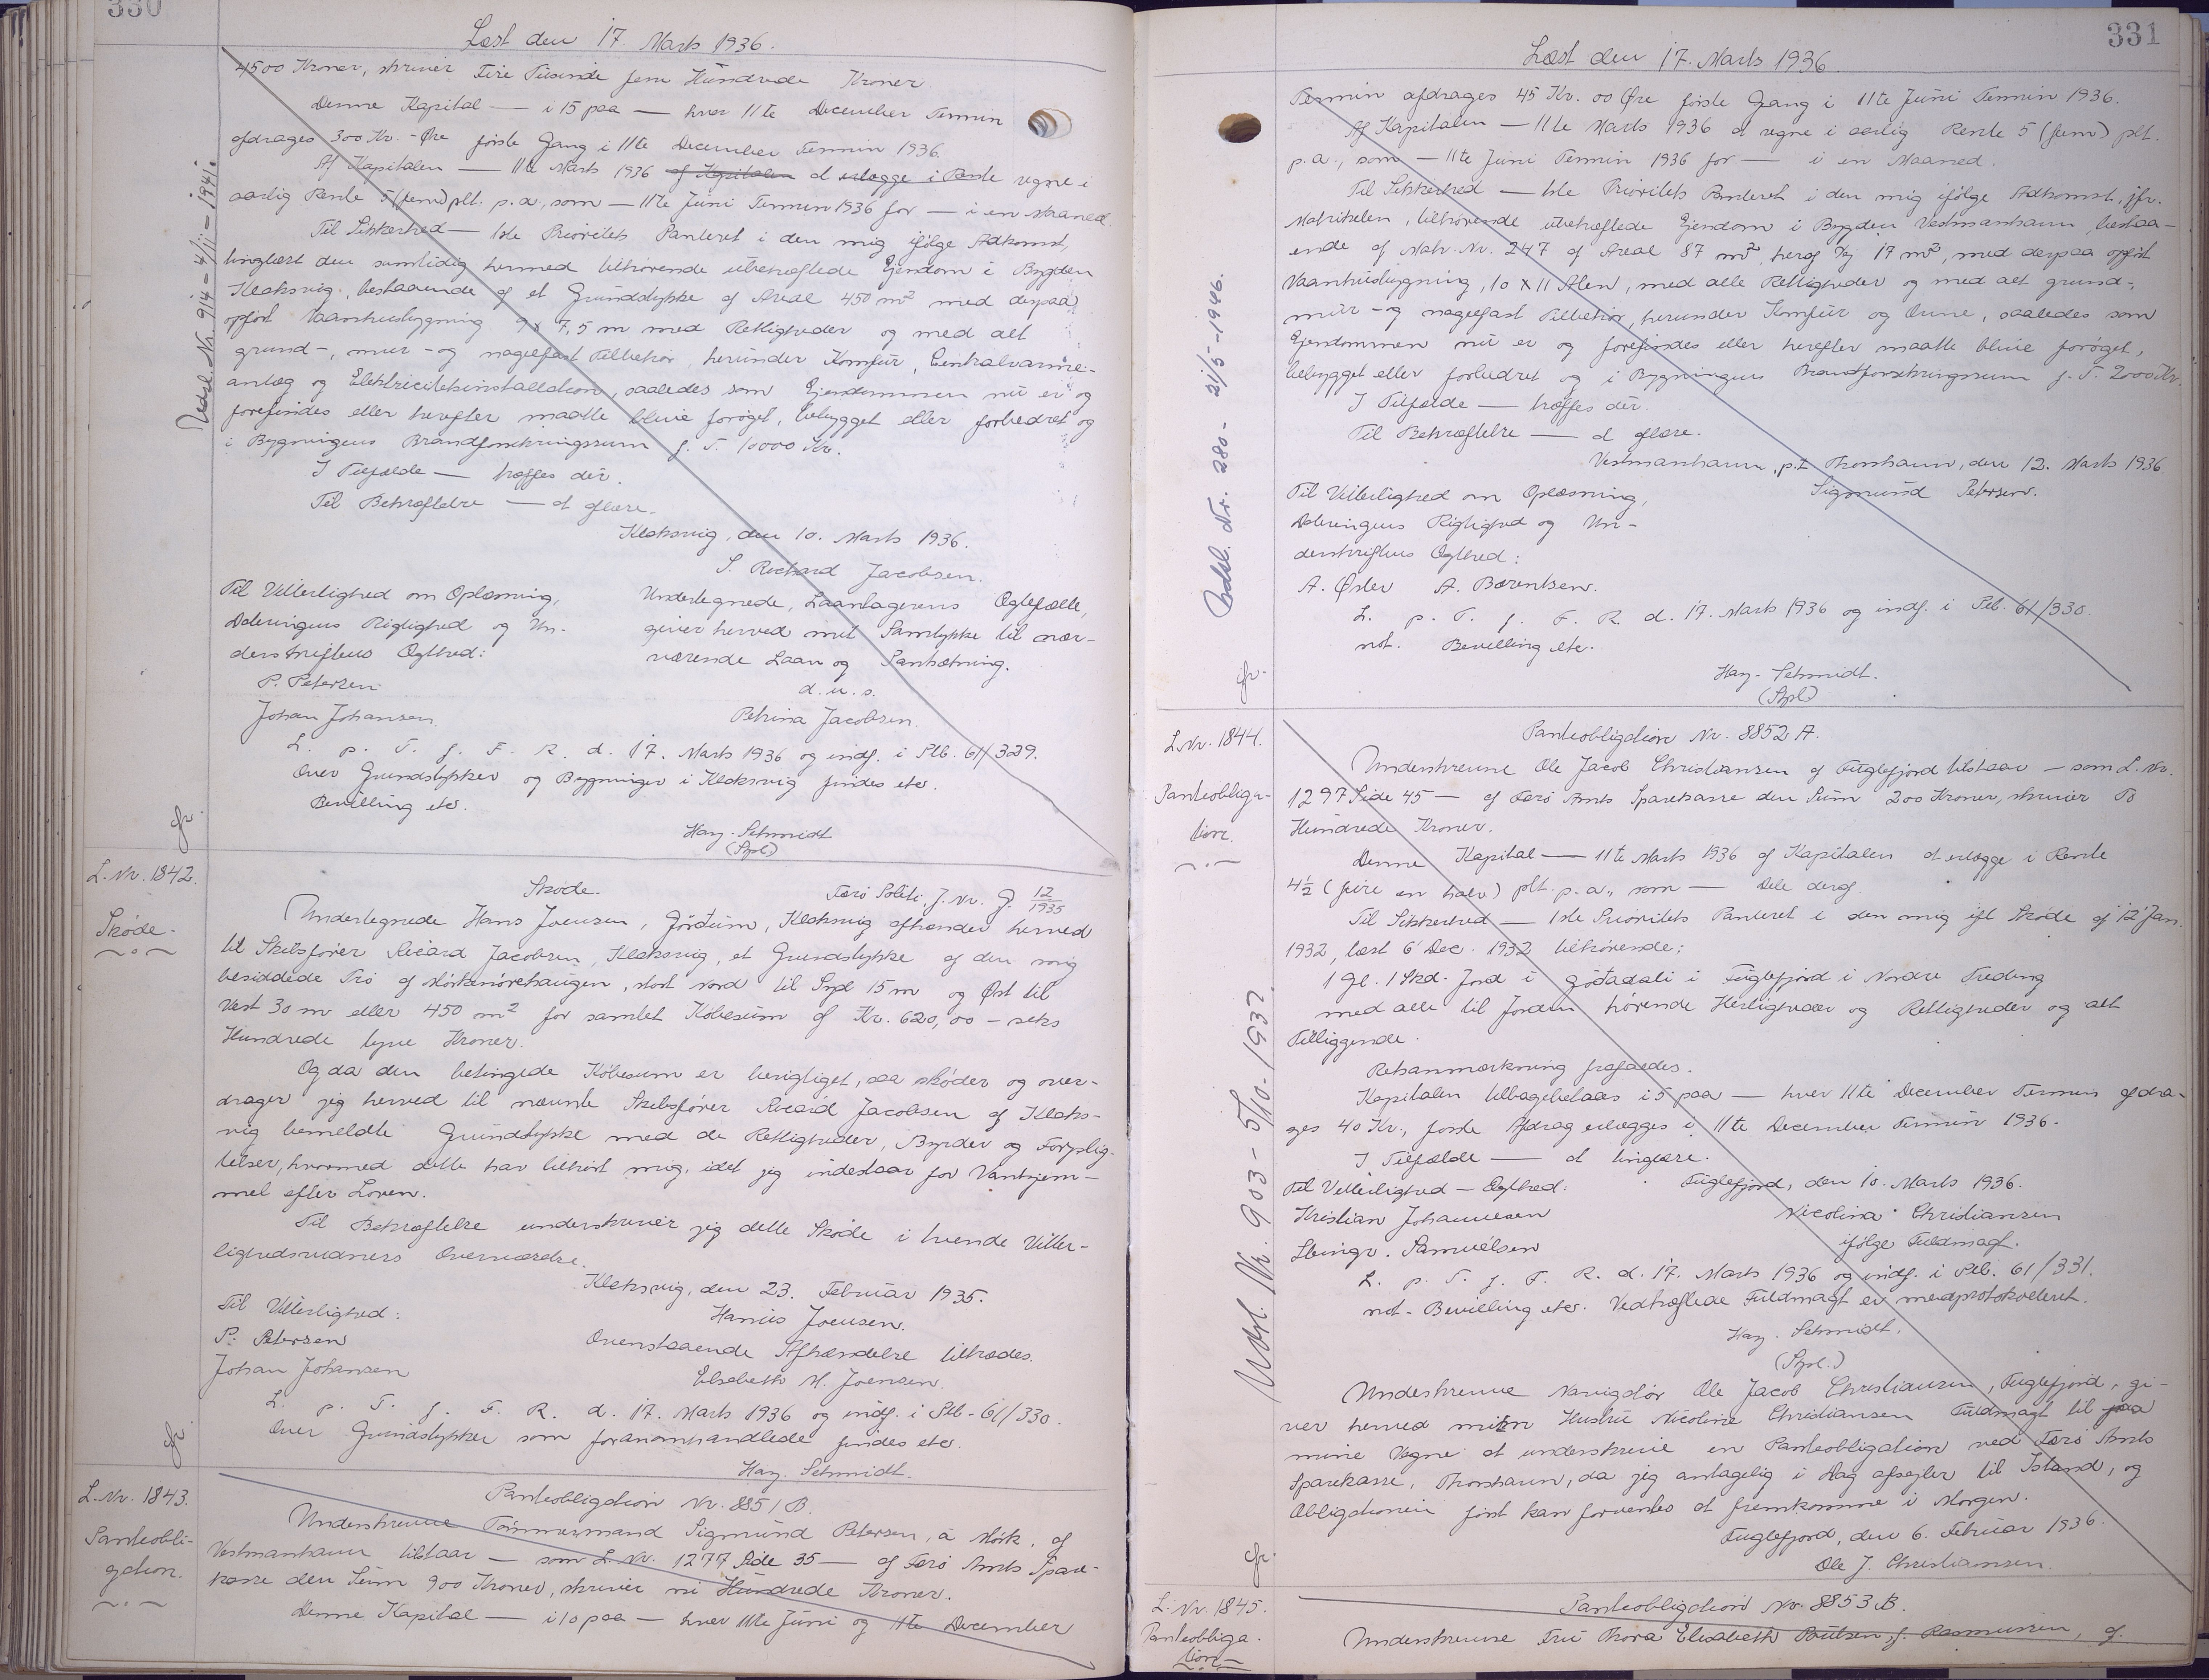 330
Læst den 17. Marts 1936.
Udsl. Nr. 914 - 4/11 - 1941.
4500 Kroner, skriver Fire Tusinde fem Hundrede Kroner
Denne Kapital — i 15 paa — hver 11te December Termin
afdrages 300 Kr. - Øre første Gang i 11te December Termin 1936.
Af Kapitalen — 11te Marts 1936 af Kapitalen at erlægge i Rente regne i
aarlig Rente 5 (fem) pCt. p.a., som — 11te Juni Termin 1936 for — i en Maaned.
Til Sikkerhed — 1ste Prioritets Panteret i den mig ifølge Adkomst,
tinglæst den samtidig hermed tilhørende ubehæftede Ejendom i Bygden
Klaksvig, bestaaende af et Grundstykke af Areal 450 m² med derpaa
opført Vaaningsbygning 9 x 7,5 m med Rettigheder og med alt
grund-, mur- og nagelfast Tilbehør, herunder Komfur, Centralvarme-
anlæg og Elektricitetsinstallation, saaledes som Ejendommen nu er og
forefindes eller herefter maatte blive forøget, bebygget eller forbedret og
i Bygningens Brandforsikringssum p. T. 10000 Kr.
I Tilfælde — træffes dér.
Til Bekræftelse — at aflæse.
Klaksvig, den 10. Marts 1936.
S. Richard Jacobsen.
Til Vitterlighed om Oplæsning,
Dateringens Rigtighed og Un-
derskriftens Ægthed:
P. Petersen
Johan Johansen
Undertegnede, Laantagerens Ægtefælle,
giver herved mit Samtykke til nær-
værende Laan og Pantsætning.
d.u.s.
Petrina Jacobsen.
L. p. T. f. F. R. d. 17. Marts 1936 og indf. i Ptb. 61/329.
Over Grundstykker og Bygninger i Klaksvig findes etc.
Bevilling etc.
Hay-Schmidt
(Spl)
L. Nr. 1842.
Skøde.
Skøde.
Færø Politi, J. Nr. G. 12/1935
Undertegnede Hans Joensen, Gørdum, Klaksvig afhænder herved
til Skibsfører Ricard Jacobsen, Klaksvig, et Grundstykke af den mig
besiddede Trø af Mørkenørehaugen, stort Nord til Syd 15 m og Øst til
Vest 30 m eller 450 m² for samlet Købesum af Kr. 620,00 - seks
Hundrede tyve Kroner.
Og da den betingede Købesum er berigtiget, saa skøder og over-
drager jeg herved til nævnte Skibsfører Ricard Jacobsen af Klaks-
vig bemeldte Grundstykke med de Rettigheder, Byrder og Forplig-
telser, hvormed dette har tilhørt mig, idet jeg indestaar for Vanhjem-
mel efter Loven.
Til Bekræftelse underskriver jeg dette Skøde i tvende Vitter-
lighedsvidners Overværelse.
Klaksvig, den 23. Februar 1935.
Til Vitterlighed:
P. Petersen
Johan Johansen
Hanus Joensen.
Ovenstaaende Afhændelse tiltrædes.
Elsebeth M. Joensen.
L. p. T. f. F. R. d. 17. Marts 1936 og indf. i Ptb. 61/330.
Over Grundstykker som foranomhandlede findes etc.
Hay-Schmidt.
L. Nr. 1843.
Panteobli-
gation.
Panteobligation Nr. 8851 B.
Underskrevne Tømmermand Sigmund Petersen, á Mørk, af
Vestmanhavn tilstaar — som L. Nr. 1277 Side 35 — af Færø Amts Spare-
kasse den Sum 900 Kroner, skriver ni Hundrede Kroner.
Denne Kapital — i 10 paa — hver 11te Juni og 11te December
331
Læst den 17. Marts 1936.
Udsl. Nr. 280 - 21/5 - 1946.
Termin afdrages 45 Kr. 00 Øre første Gang i 11te Juni Termin 1936.
Af Kapitalen — 11te Marts 1936 at regne i aarlig Rente 5 (fem) pCt.
p.a., som — 11te Juni Termin 1936 for — i en Maaned.
Til Sikkerhed — 1ste Prioritets Panteret i den mig ifølge Adkomst, jfr.
Matriklen, tilhørende ubehæftede Ejendom i Bygden Vestmanhavn, bestaa-
ende af Matr. Nr. 247 af Areal 87 m², heraf Vej 17 m², med derpaa opført
Vaaningsbygning, 10 x 11 Alen, med alle Rettigheder og med alt grund-,
mur- og nagelfast Tilbehør, herunder Komfur og Ovne, saaledes som
Ejendommen nu er og forefindes eller herefter maatte blive forøget,
bebygget eller forbedret og i Bygningens Brandforsikringssum p. T. 2000 Kr.
I Tilfælde — træffes dér.
Til Bekræftelse — at aflæse.
Vestmanhavn, p.t. Thorshavn, den 12. Marts 1936.
Sigmund Petersen.
Til Vitterlighed om Oplæsning,
Dateringens Rigtighed og Un-
derskriftens Ægthed:
A. Øster A. Bærentsen.
L. p. T. f. F. R. d. 17. Marts 1936 og indf. i Ptb. 61/330.
not. Bevilling etc.
Hay-Schmidt.
(Spl)
L. Nr. 1844.
Panteobliga-
tion.
Udsl. Nr. 903 - 5/10 - 1937
Panteobligation Nr. 8852 A.
Underskrevne Ole Jacob Christiansen af Fuglefjord tilstaar — som L. Nr.
1297 Side 45 — af Færø Amts Sparekasse den Sum 200 Kroner, skriver To
Hundrede Kroner.
Denne Kapital — 11te Marts 1936 af Kapitalen at erlægge i Rente
4½ (fire en halv) pCt. p.a., som — Dele deraf.
Til Sikkerhed — 1ste Prioritets Panteret i den mig ifl. Skøde af 12' Jan.
1932, læst 6' Dec. 1932 tilhørende:
1 Gl. 1 Skd. Jord i gøtadali i Fuglefjord i Nordre Treding
med alle til Jorden hørende Herligheder og Rettigheder og alt
Tilliggende.
Retsanmærkning frafaldes.
Kapitalen tilbagebetales i 5 paa — hver 11te December Termin afdra-
ges 40 Kr., første Afdrag erlægges i 11te December Termin 1936.
I Tilfælde — at tinglæse.
Til Vitterlighed — Ægthed:
Kristian Johannesen
Steingr. Samuelsen
Fuglefjord, den 10. Marts 1936.
Nicolina Christiansen
ifølge Fuldmagt.
L. p. T. f. F. R. d. 17. Marts 1936 og indf. i Ptb. 61/331.
not. Bevilling etc. Vedhæftede Fuldmagt er medprotokolleret.
Hay-Schmidt.
(Spl.)
Underskrevne Navigatør Ole Jacob Christiansen, Fuglefjord, gi-
ver herved min Hustru Nicoline Christiansen Fuldmagt til paa
mine Vegne at underskrive en Panteobligation ved Færø Amts
Sparekasse, Thorshavn, da jeg antagelig i Dag afsejler til Island, og
Obligationen først kan forventes at fremkomme i Morgen.
Fuglefjord, den 6. Februar 1936.
Ole J. Christiansen.
L. Nr. 1845.
Panteobliga-
tion.
Panteobligation Nr. 8853 B.
Underskrevne Fru Thora Elisabeth Poulsen, f. Rasmussen, af